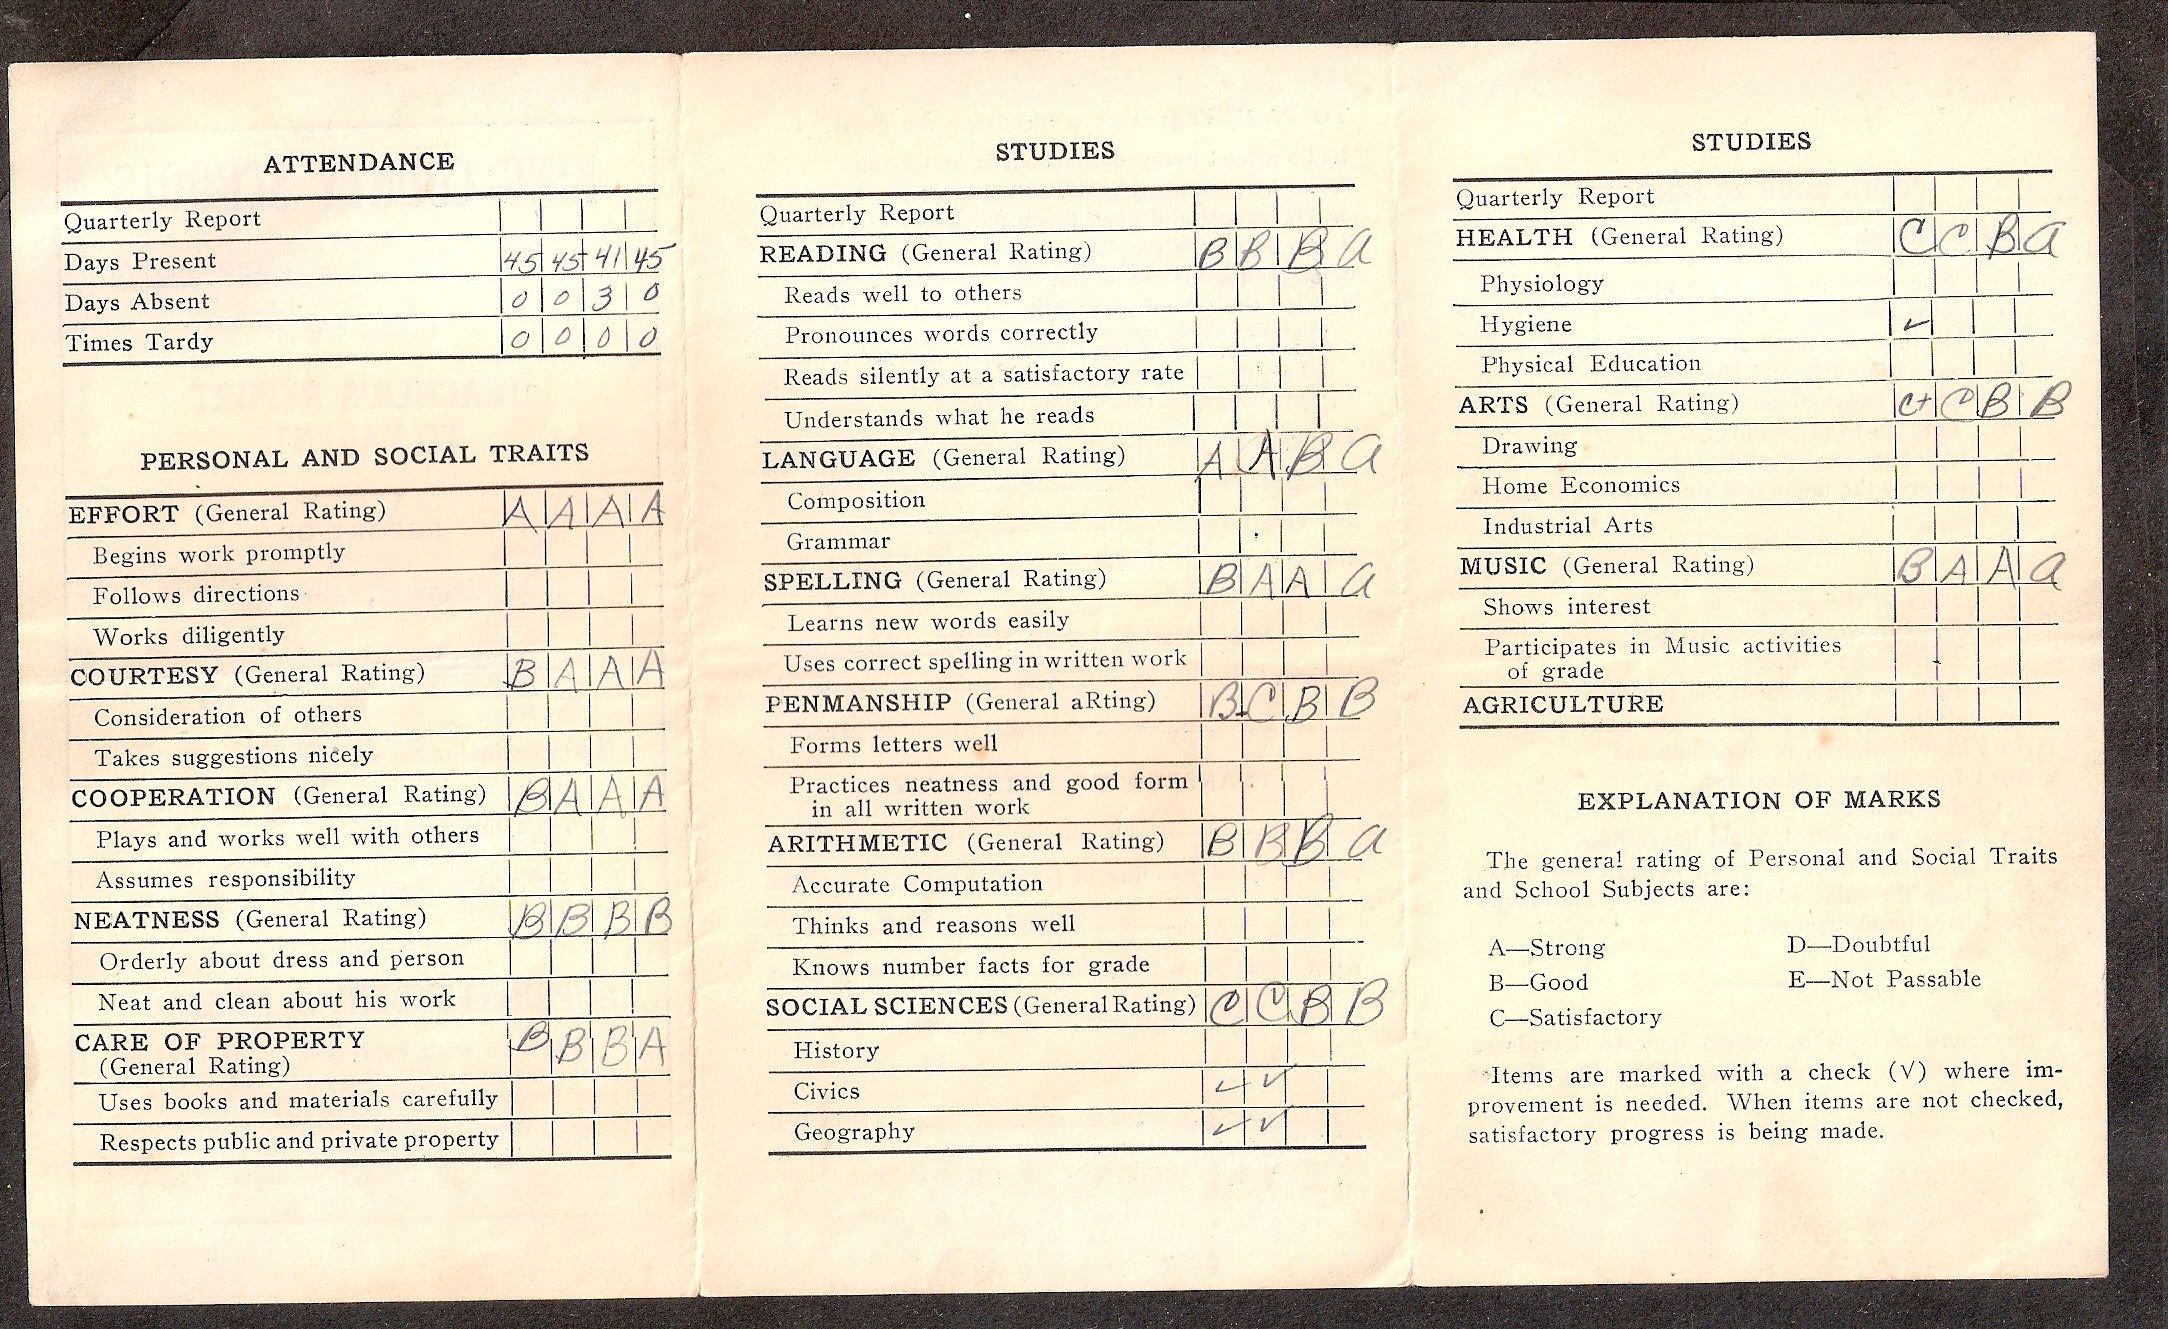 ATTENDANCE
Quarterly Report
Days Present 45 45 41 45
Days Absent 0 0 3 0
Times Tardy 0 0 0 0
PERSONAL AND SOCIAL TRAITS
EFFORT (General Rating) A A A A
Begins work promptly
Follows directions
Works diligently
COURTESY (General Rating) B A A A
Consideration of others
Takes suggestions nicely
COOPERATION (General Rating) B A A A
Plays and works well with others
Assumes responsibility
NEATNESS (General Rating) B B B B
Orderly about dress and person
Neat and clean about his work
CARE OF PROPERTY B B B A
(General Rating)
Uses books and materials carefully
Respects public and private property
STUDIES
Quarterly Report
READING (General Rating) B B B A
Reads well to others
Pronounces words correctly
Reads silently at a satisfactory rate
Understands what he reads
LANGUAGE (General Rating) A A B A
Composition
Grammar
SPELLING (General Rating) B A A A
Learns new words easily
Uses correct spelling in written work
PENMANSHIP (General aRting) B- C B B
Forms letters well
Practices neatness and good form
in all written work
ARITHMETIC (General Rating) B B B A
Accurate Computation
Thinks and reasons well
Knows number facts for grade
SOCIAL SCIENCES (General Rating) C C B B
History
Civics ✓ ✓
Geography ✓ ✓
STUDIES
Quarterly Report
HEALTH (General Rating) C C B A
Physiology
Hygiene ✓
Physical Education
ARTS (General Rating) C+ C B B
Drawing
Home Economics
Industrial Arts
MUSIC (General Rating) B A A A
Shows interest
Participates in Music activities
of grade
AGRICULTURE
EXPLANATION OF MARKS
The general rating of Personal and Social Traits
and School Subjects are:
A—Strong D—Doubtful
B—Good E—Not Passable
C—Satisfactory
Items are marked with a check (√) where im-
provement is needed. When items are not checked,
satisfactory progress is being made.